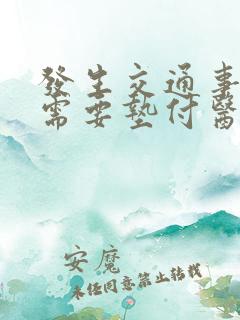 發生交通事
需要墊付醫
安魔
未经同意禁止转载